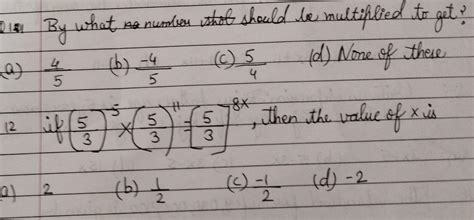 By what no number that should be multiplied to get?
a) 4/5 (b) -4/5 (c) 5/4 (d) None of these
12 if (5/3)^5 × (5/3)^11 = [5/3]^8x, then the value of x is
a) 2 (b) 1/2 (c) -1/2 (d) -2